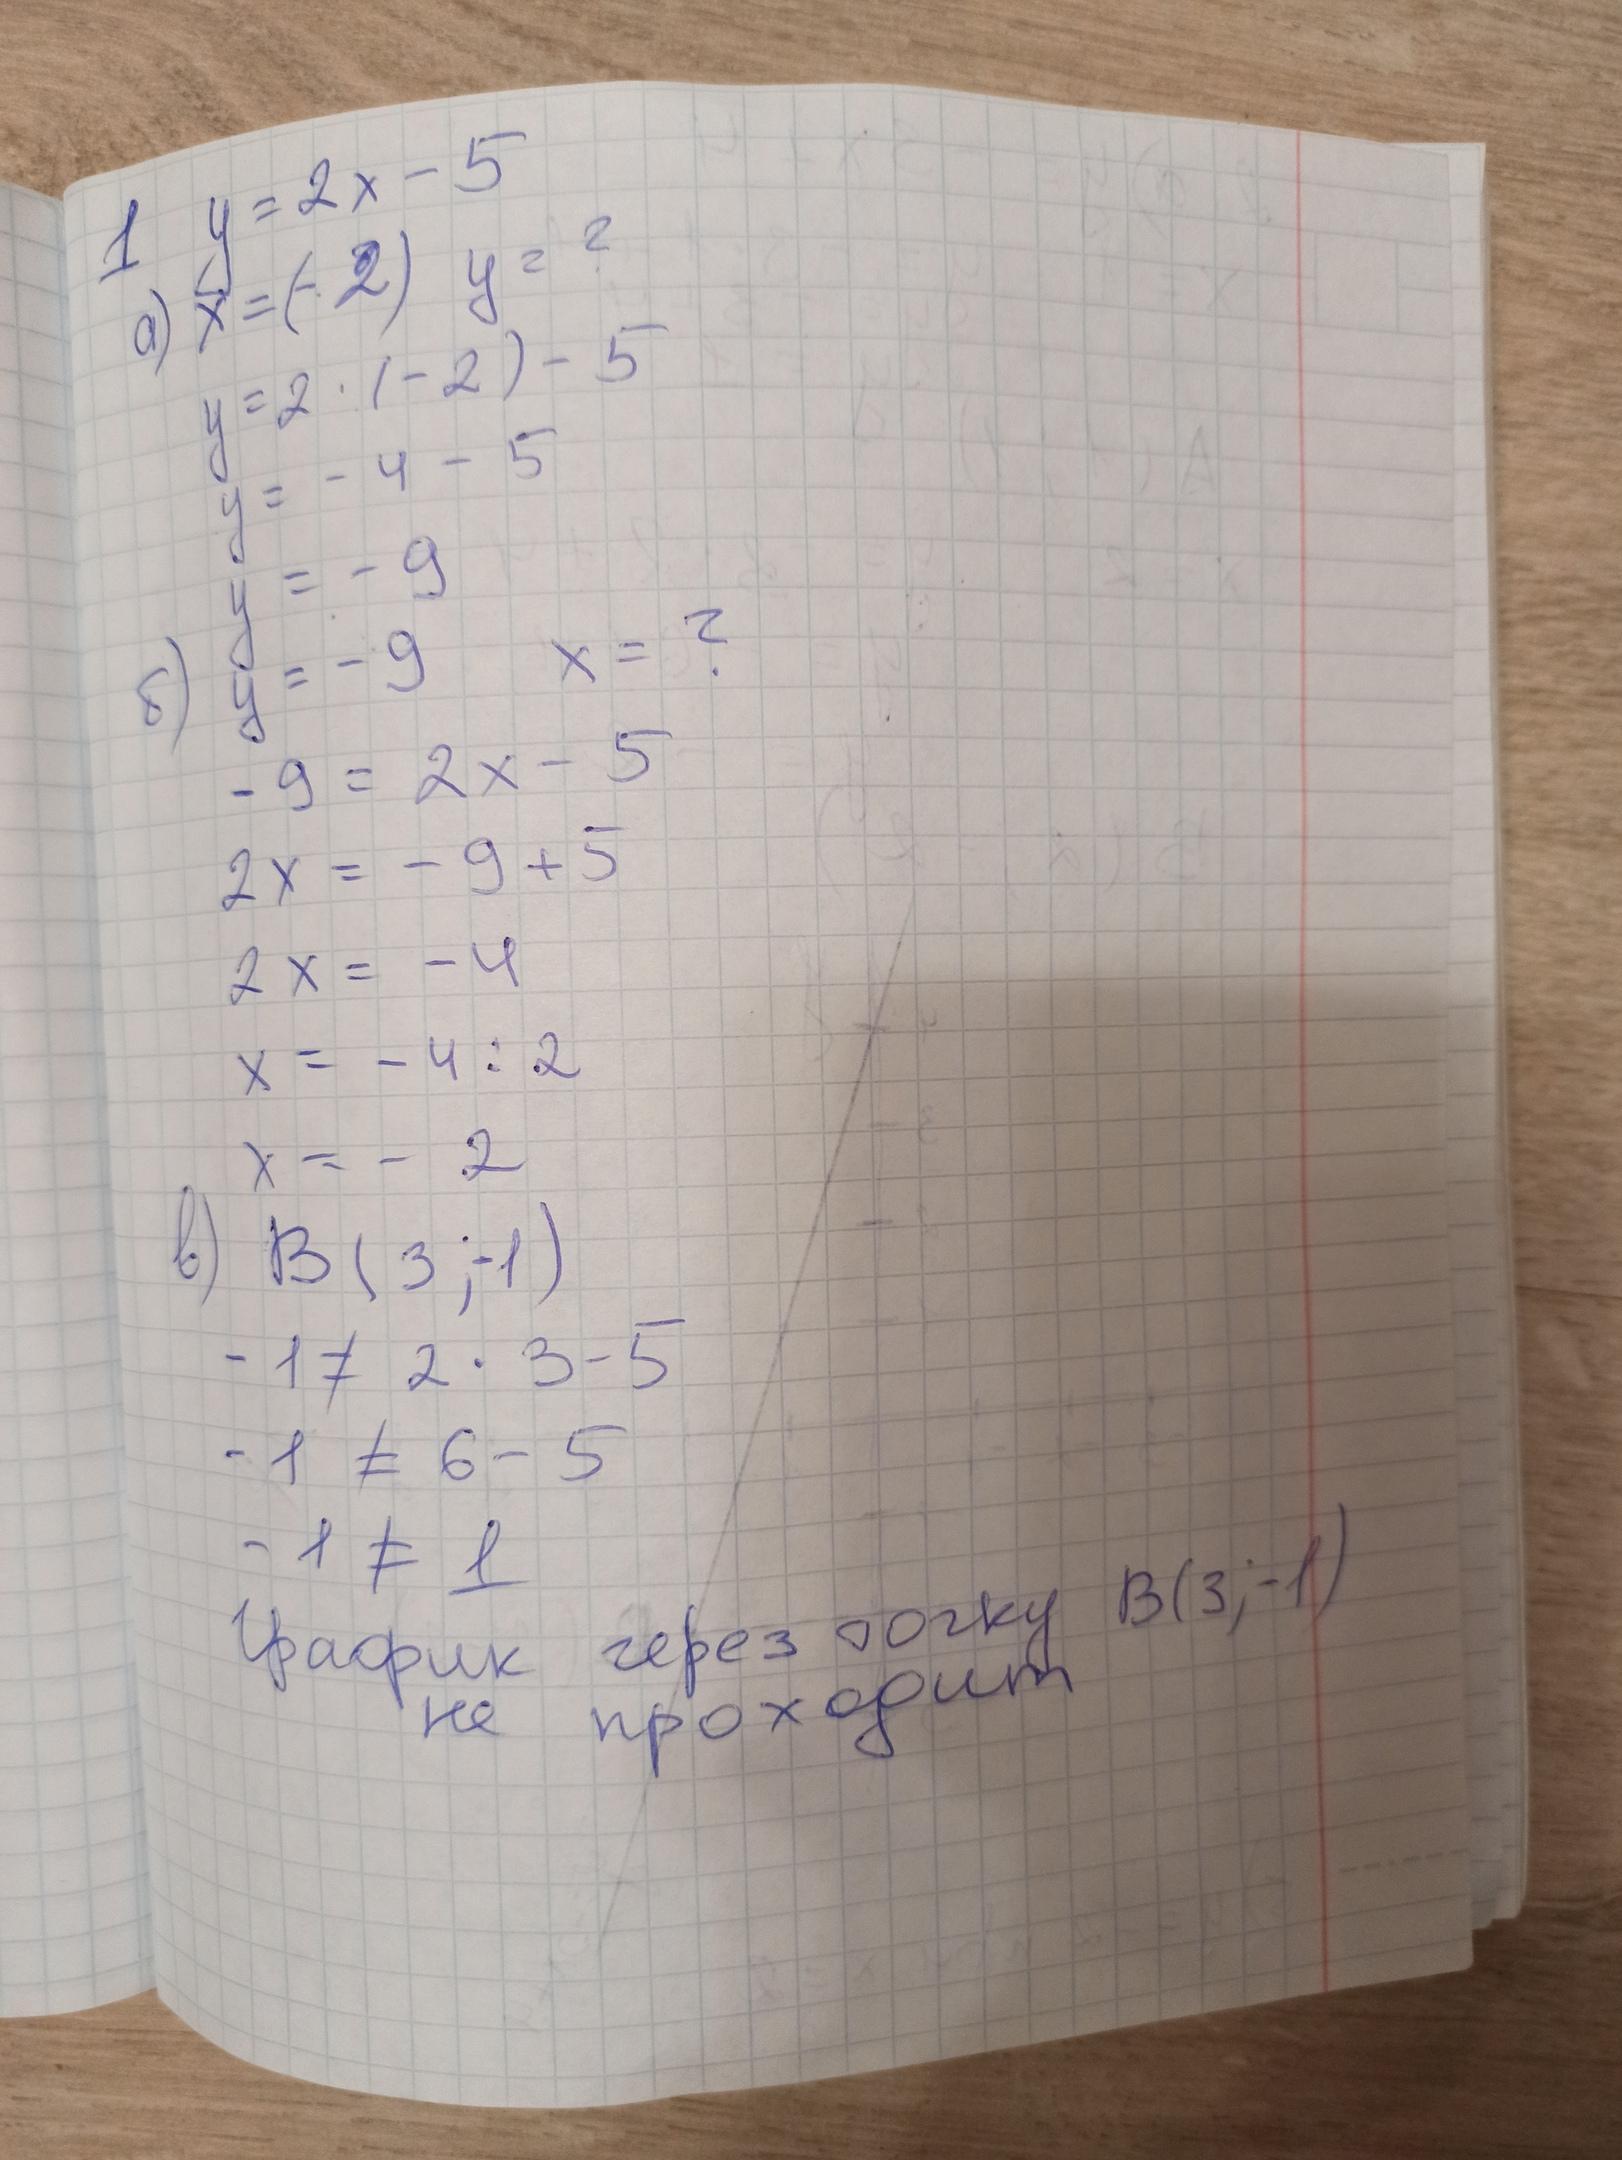 1 y = 2x - 5
а) x = (- 2) y = ?
y = 2 · (-2) - 5
y = - 4 - 5
y = - 9
б) y = - 9 x = ?
- 9 = 2x - 5
2x = - 9 + 5
2x = - 4
x = - 4 : 2
x = - 2
в) B(3;-1)
- 1 ≠ 2 · 3 - 5
- 1 ≠ 6 - 5
- 1 ≠ 1
График через точку B(3;-1)
не проходит